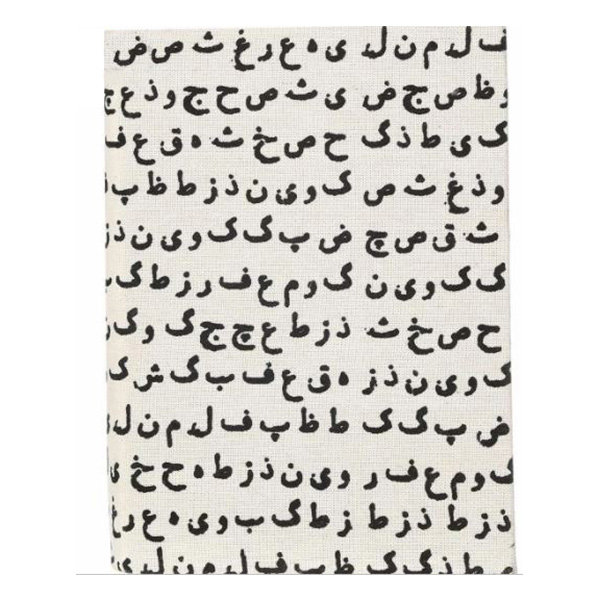 ف ل م ن ل ی ه ع ر غ ث ص ض
و ظ ص ج ض ی ث ص ح ج و ذ ع ج
گ ی ط ذ گ ح ص خ ث ه ق ع ف
و ذ غ ث ص ک و ی ن ذ ز ط ظ پ
ث ق ص چ ض پ گ ک و ی ن ذ
گ ک و ی ن گ و م ع ف ر ز ط گ
ح ص خ ث ذ ز ط ع چ ج گ و گ ز
ک و ی ن ذ ز ه ق ع ف ب گ ش ک
ض پ گ ک ط ظ پ ف ل م ن ل
گ و م ع ف ر و ی ن ذ ز ط ه ح خ
ز ط ذ ز ط ز ط ذ ز ط گ ب و ی ه ع ر غ
ط ذ گ ک ظ ب ف ل م ن ل ی ع